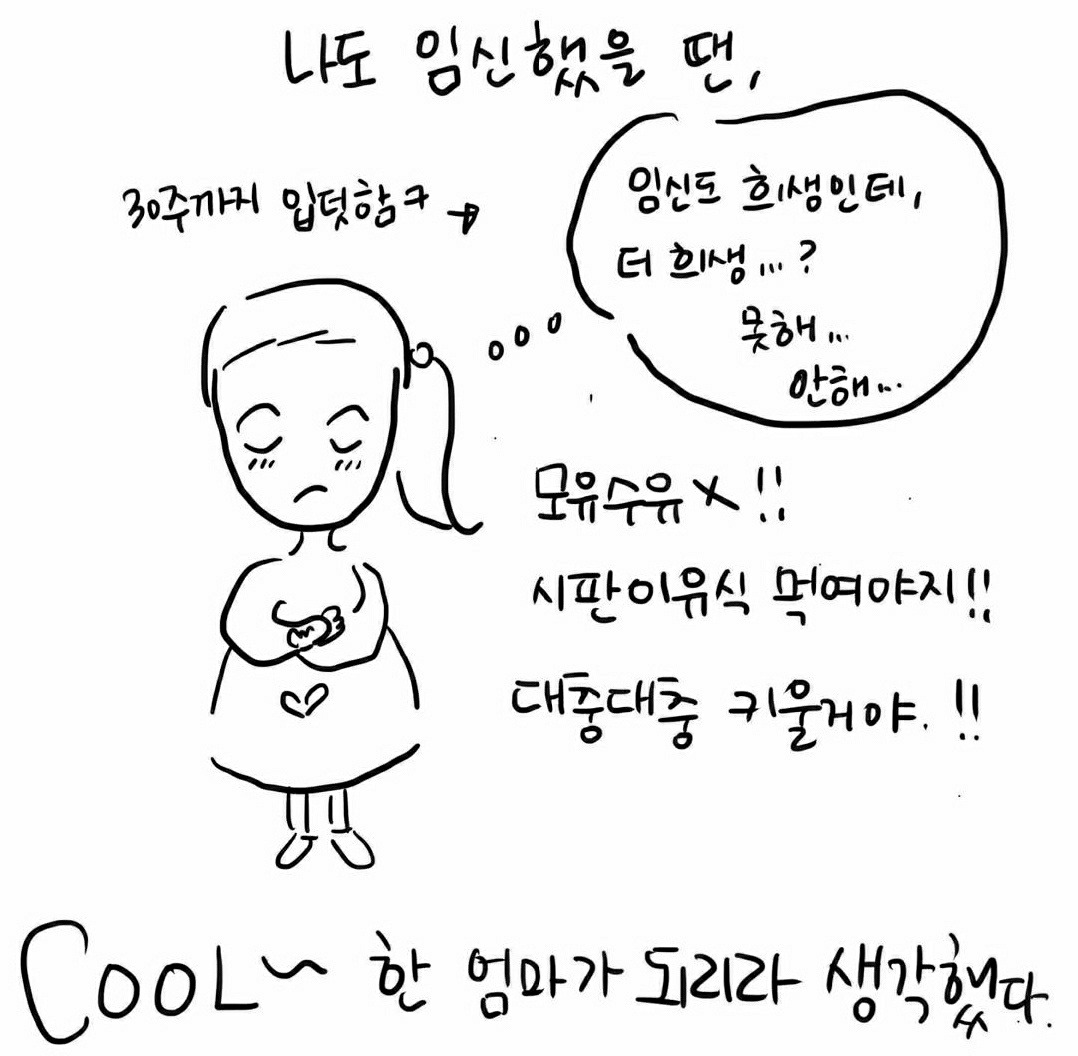 나도 임신했을 땐,
30주까지 입덧함ㅋ →
임신도 희생인데,
더 희생...?
못해...
안해...
모유수유 X !!
시판이유식 먹여야지!!
대충대충 키울거야. !!
COOL~ 한 엄마가 되리라 생각했다.